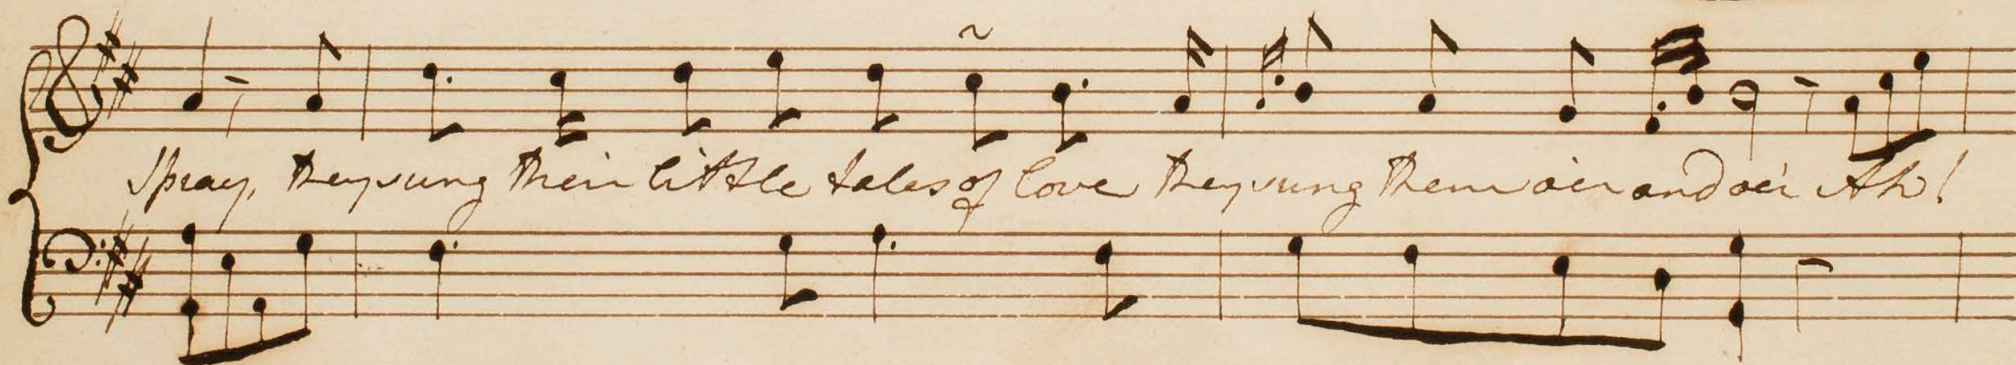 Spray, they sung their little tales of love they sung them oer and oe'r Ah!